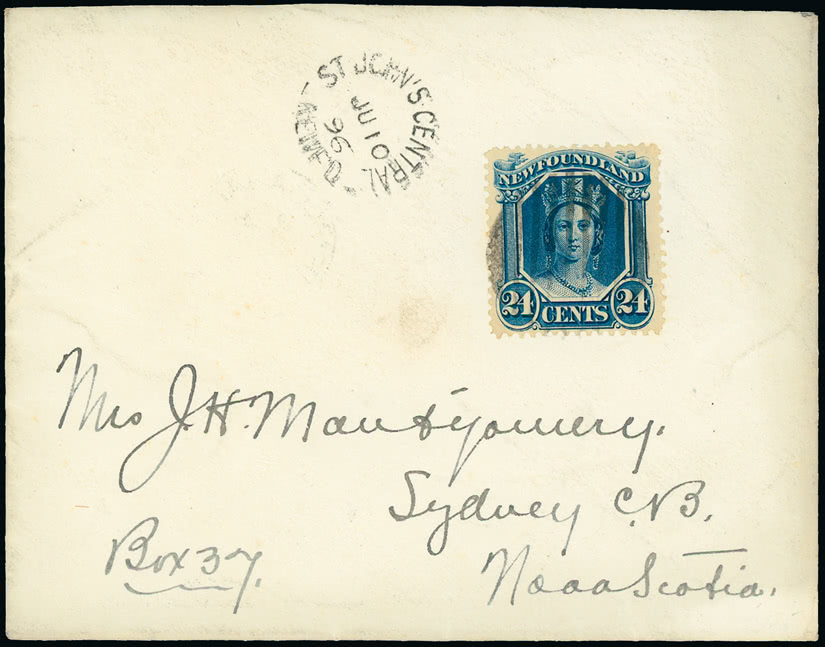 ST JOHN'S CENTRAL
NEWF'D
JU 10
96
NEWFOUNDLAND
24 CENTS 24
Mrs J. H. Montgomery.
Sydney C.B.
Box 37.
Nova Scotia.